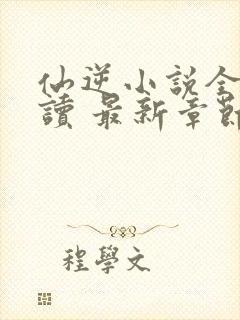 仙逆小説全
讀 最新章節
程學文